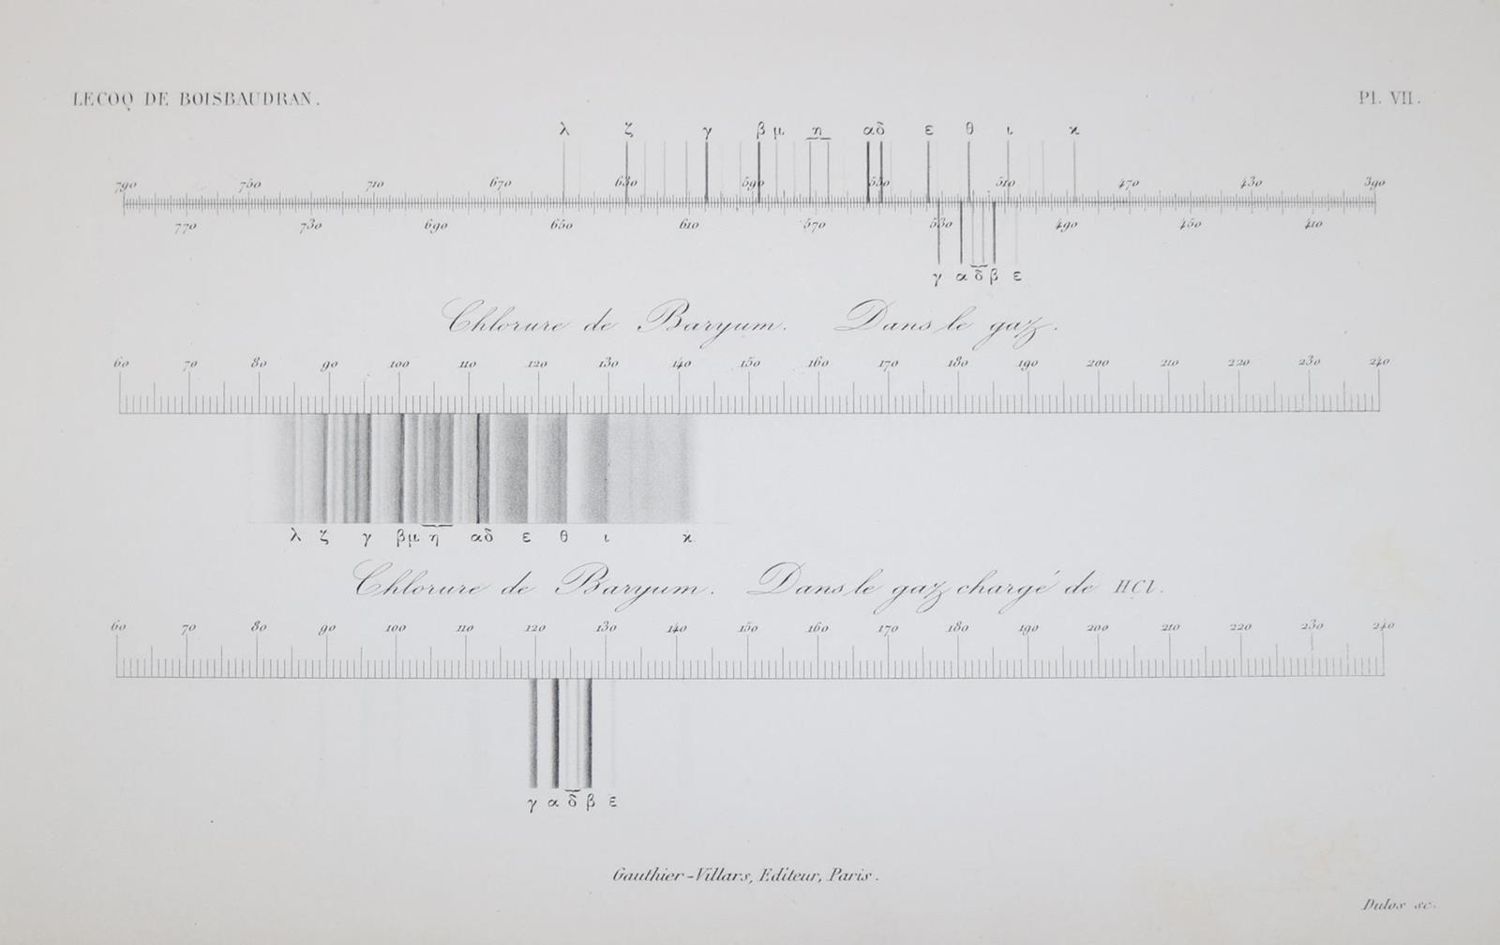 LECOQ DE BOISBAUDRAN. Pl. VII.
λ ζ γ β μ η α δ ε θ ι ϰ
790 750 710 670 630 590 550 510 470 430 390
770 730 690 650 610 570 530 490 450 410
γ α δ β ε
Chlorure de Baryum. Dans le gaz.
60 70 80 90 100 110 120 130 140 150 160 170 180 190 200 210 220 230 240
λ ζ γ β μ η α δ ε θ ι ϰ
Chlorure de Baryum. Dans le gaz chargé de HCl.
60 70 80 90 100 110 120 130 140 150 160 170 180 190 200 210 220 230 240
γ α δ β ε
Gauthier-Villars, Editeur, Paris.
Dulos sc.